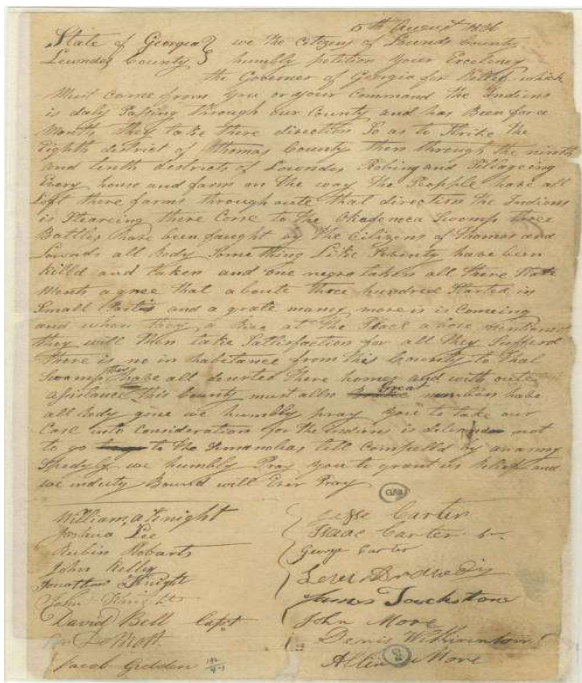 6th August 1836
State of Georgia } we the citizens of Lownds County
Lowndes County } humbly petition your Excelency
the Governor of Georgia for Relief which
Must come from you or your Command the Indians
is daly Passing through our County and has Been for a
Month they take there direction So as to Strike the
Eighth district of Thomas County then through the ninth
and tenth districts of Lowndes Robing and Pillageing
Every house and farm on the way The People have all
Left there farms throughoute that direction the Indians
is Stearing there Corse to the Swamp three
Battles have been faught by the Citizens of Thomas and
Lownds all Body Something Like Twenty have been
killed and taken and one negro taken all there
agree that aboute three hundred Started in
Small Parties and a grate many more is Comeing
and when they arive at the Place above mentioned
they will then take Satisfaction for all they Sufferd
there is no inhabitance from this County to that
Swamp they have all deserted there homes and with oute
asistance this County must allso Great numbers have
all Body gone we humbly pray you to take our
Case into Consideration for the Indians is not
to go to the till Compelled by an army
Speedy we humbly Pray you to grant us Relief and
we in duty Bound will Ever Pray
William A Knight
Joshua Lee
Rubin Robarts
John Kelly
Jonathan Knight
John Knight
David Bell Capt
Jacob Gedden
Jesse Carter
Isaac Carter
George Carter
James Touchstone
John More
Dennis
More